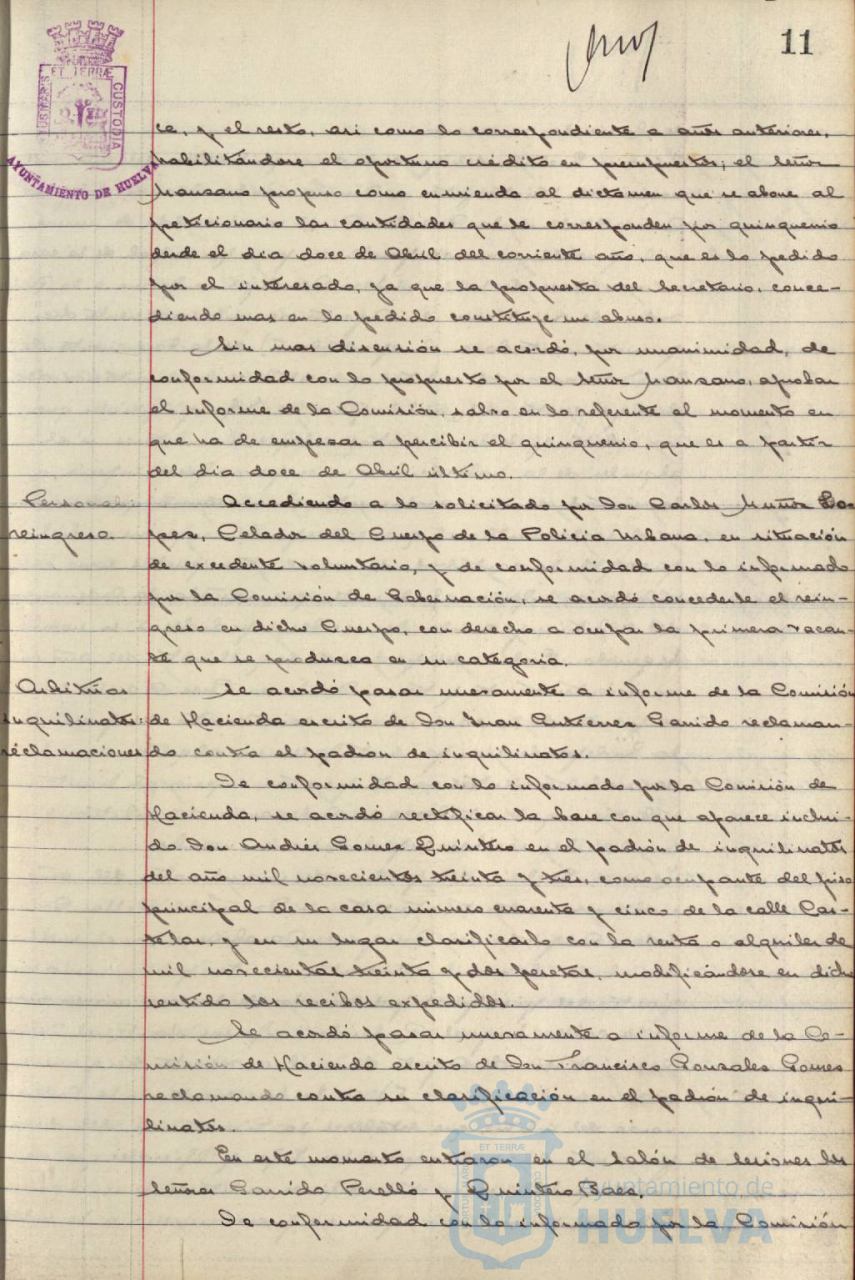 11
ET TERRÆ
CUSTODIA
AYUNTAMIENTO DE HUELVA
ce, y el resto, asi como lo correspondiente a años anteriores,
habilitándose el oportuno crédito en presupuestos; el Señor
Manzano propuso como enmienda al dictamen que se abone al
peticionario las cantidades que le corresponden por quinquenio
desde el dia doce de Abril del corriente año, que es lo pedido
por el interesado, ya que la propuesta del Secretario, conce-
diendo mas en lo pedido constituye un abuso.
Sin mas discusión se acordó, por unanimidad, de
conformidad con lo propuesto por el Señor Manzano, aprobar
el informe de la Comisión, salvo en lo referente al momento en
que ha de empezar a percibir el quinquenio, que es a partir
del dia doce de Abril último.
Personal:
reingreso.
Accediendo a lo solicitado por Don Carlos Muñoz Lo-
pez, Celador del Cuerpo de la Policia Urbana, en situación
de excedente voluntario, y de conformidad con lo informado
por la Comisión de Gobernación, se acordó concederle el rein-
greso en dicho Cuerpo, con derecho a ocupar la primera vacan-
te que se produzca en su categoria.
Arbitrios
inquilinatos:
reclamaciones
Se acordó pasar nuevamente a informe de la Comisión
de Hacienda escrito de Don Juan Gutierrez Garrido reclaman-
do contra el padrón de inquilinatos.
De conformidad con lo informado por la Comisión de
Hacienda, se acordó rectificar la base con que aparece inclui-
do Don Andrés Gomez Quintero en el padrón de inquilinatos
del año mil novecientos treinta y tres, como ocupante del piso
principal de la casa número cuarenta y cinco de la calle Cas-
telar, y en su lugar clasificarlo con la renta o alquiler de
mil novecientas treinta y dos pesetas, modificándose en dicho
sentido los recibos expedidos.
Se acordó pasar nuevamente a informe de la Co-
misión de Hacienda escrito de Don Francisco Gonzalez Gomez
reclamando contra su clasificación en el padrón de inqui-
linatos.
En este momento entraron en el Salón de Sesiones los
Señores Garrido Perelló y Quintero Baez.
De conformidad con lo informado por la Comisión
ET TERRÆ
Ayuntamiento de
HUELVA